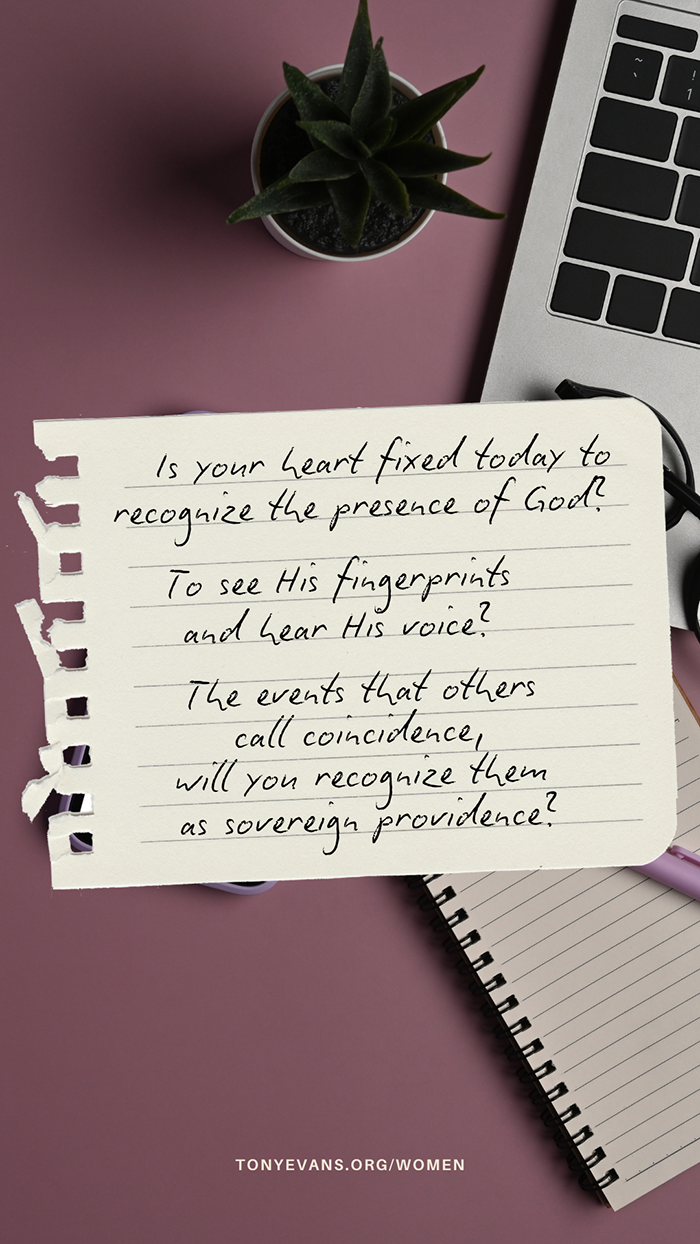 Is your heart fixed today to
recognize the presence of God?
To see His fingerprints
and hear His voice?
The events that others
call coincidence,
will you recognize them
as sovereign providence?
TONYEVANS.ORG/WOMEN
~
`
!
1